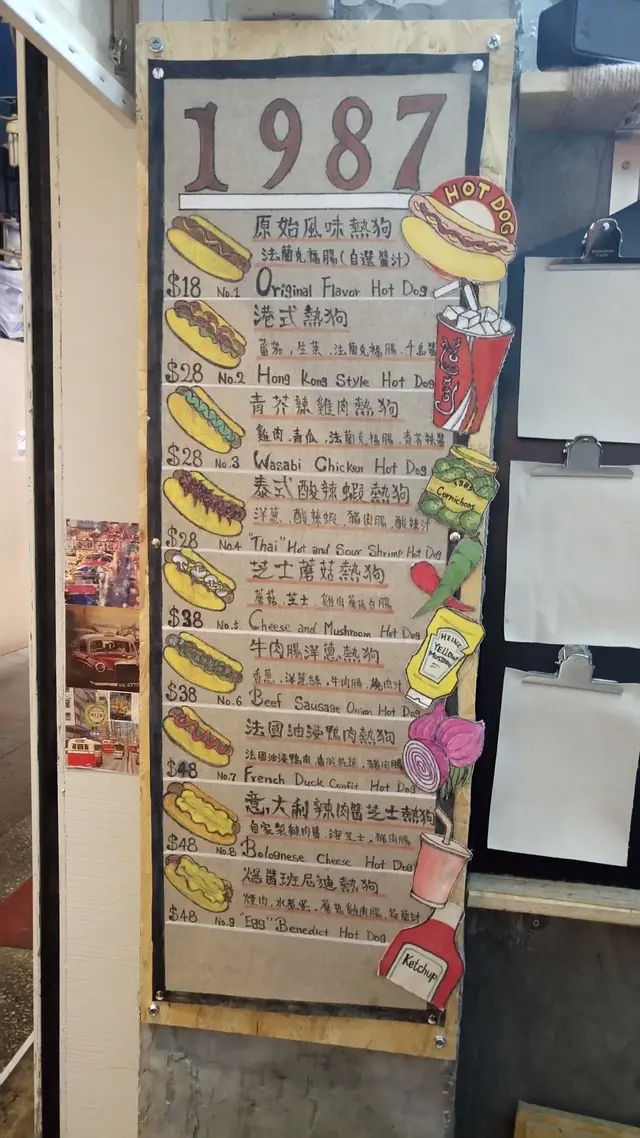 1987
HOT DOG
原始風味熱狗
法蘭克福腸(自選醬汁)
$18 No.1 Original Flavor Hot Dog
港式熱狗
蕃茄,生菜,法蘭克福腸,千島醬
$28 No.2 Hong Kong Style Hot Dog
青芥辣雞肉熱狗
雞肉,青瓜,法蘭克福腸,青芥辣醬
$28 No.3 Wasabi Chicken Hot Dog
1987
Cornichons
泰式酸辣蝦熱狗
洋蔥,酸辣蝦,豬肉腸,酸辣汁
$28 No.4 "Thai" Hot and Sour Shrimp Hot Dog
芝士蘑菇熱狗
蘑菇,芝士,雞肉蘑菇白腸
$38 No.5 Cheese and Mushroom Hot Dog
HEINZ
YELLOW
牛肉腸洋蔥熱狗
香蔥,洋蔥絲,牛肉腸,燒肉汁
$38 No.6 Beef Sausage Onion Hot Dog
法國油浸鴨肉熱狗
法國油浸鴨肉,豬肉腸
$48 No.7 French Duck Confit Hot Dog
意大利辣肉醬芝士熱狗
自家製辣肉醬,溶芝士,豬肉腸
$48 No.8 Bolognese Cheese Hot Dog
爆醬班尼迪熱狗
煙肉,水煮蛋,蘑菇雞肉腸,荷蘭汁
$48 No.9 "Egg" Benedict Hot Dog
Ketchup